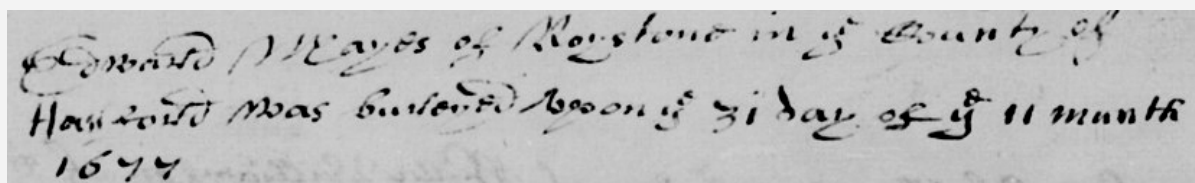 Edward Mayes of Roystone in ye County of
Hartford was buried upon ye 31 day of ye 11 munth
1677